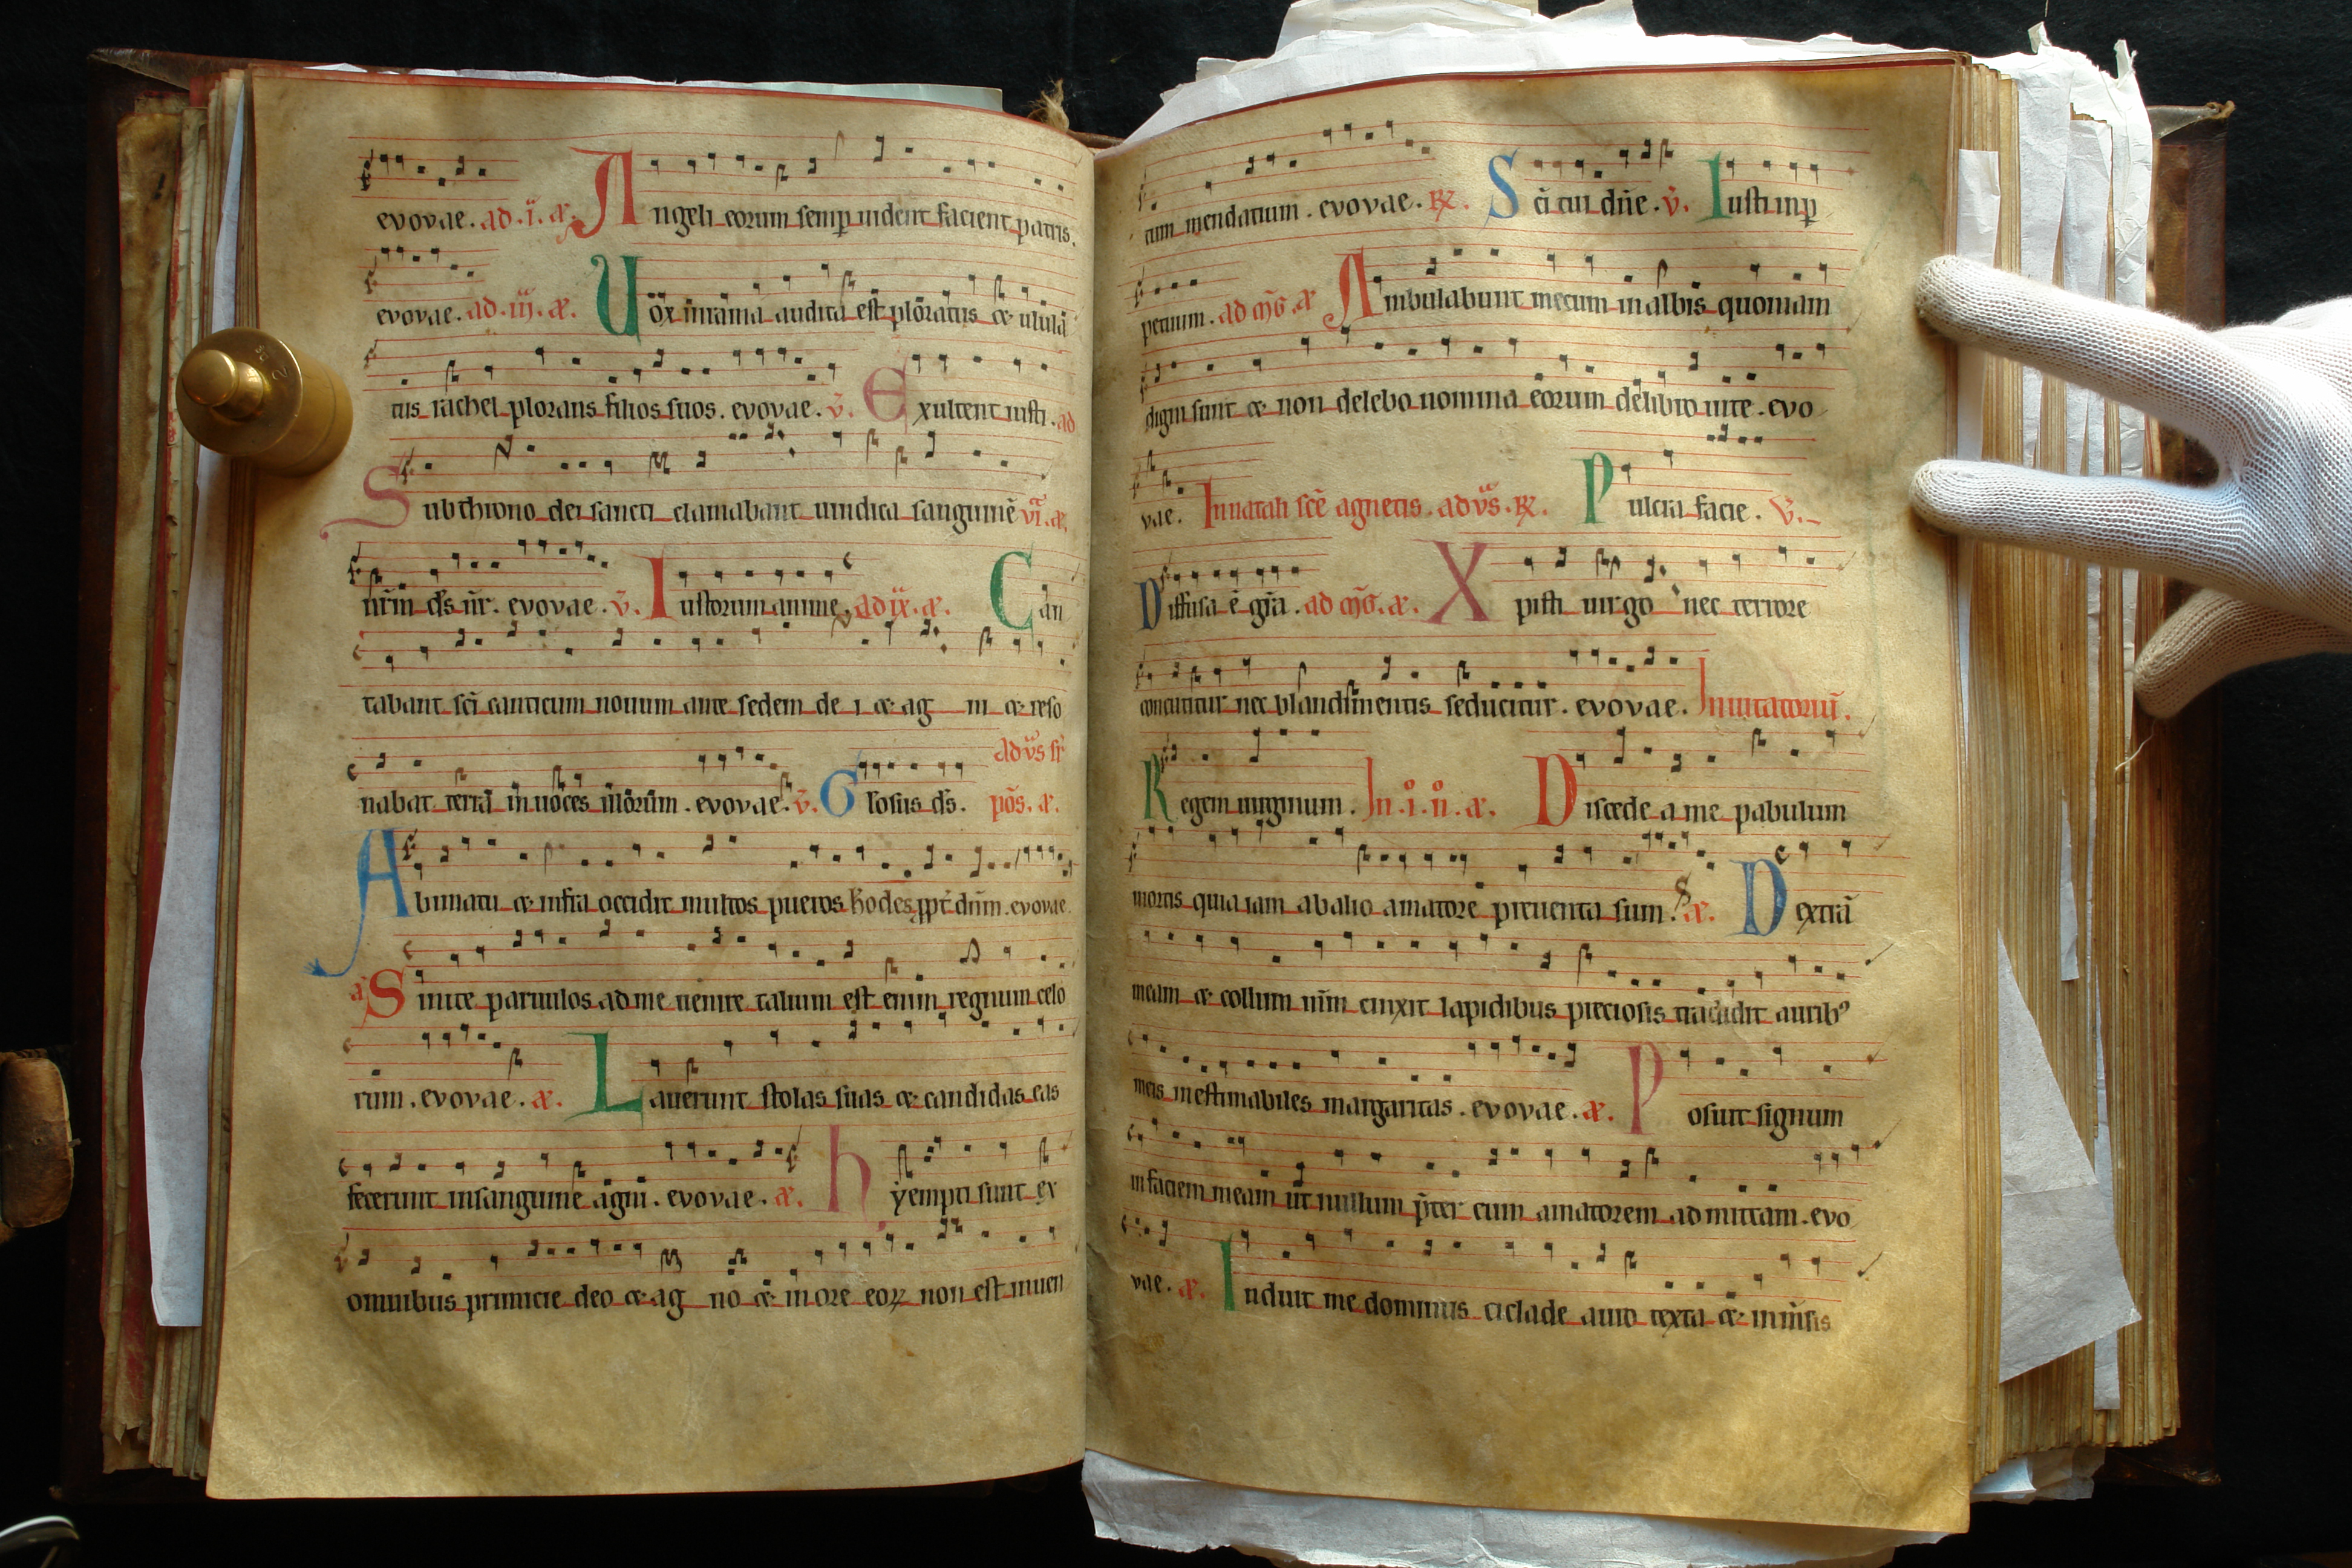 evovae. ad .i. æ. Angeli eorum semp uident faciem patris.
evovae. ad .iii. æ. Uox in rama audita est ploratus & ulula
tus rachel plorans filios suos. evovae. v̄. Exultent iusti. ad
Sub throno dei sancti clamabant uindica sanguinē vi. æ.
nr̄m ds̄ nr̄. evovae. v̄. Iustorum anime. ad ix. æ. Can
tabant sc̄i canticum nouum ante sedem de i & ag ni & reso
nabat terrā in uoces illorum. evovae. v̄. Gloriosus ds̄. ad vs̄ sr̄
pōs. æ.
A bimatu & infra occidit multos pueros herodes ppt̄ dn̄m. evovae.
a Sinite paruulos ad me uenire talium est enim regnum celo
rum. evovae. æ. Lauerunt stolas suas & candidas eas
fecerunt in sanguine agni. evovae. æ. hy empti sunt ex
omnibus primicie deo & ag no & in ore eoꝝ non est inuen
tum mendatium. evovae. ℟. Sc̄i tui dn̄e. v̄. Iusti in p
petuum. ad mḡ. æ Ambulabunt mecum in albis quoniam
digni sunt & non delebo nomina eorum de libro uite. evo
vae. In natali sc̄e agnetis. ad vs̄. ℟. Pulcra facie. v̄.
Diffusa ē gr̄a. ad mḡ. æ. Xpisti uirgo nec terrore
concutitur nec blandimentis seducitur. evovae. Inuitatoriū.
Regem uirginum. In .i. n̊. æ. Discede a me pabulum
mortis quia iam ab alio amatore preuenta sum. æ. Dextrā
meam & collum mm̄ cinxit lapidibus preciosis tradidit aurib⁹
meis inestimabiles margaritas. evovae. æ. Posuit signum
in faciem meam ut nullum p̄ter eum amatorem admittam. evo
vae. æ. Induit me dominus ciclade auro texta & inm̄sis